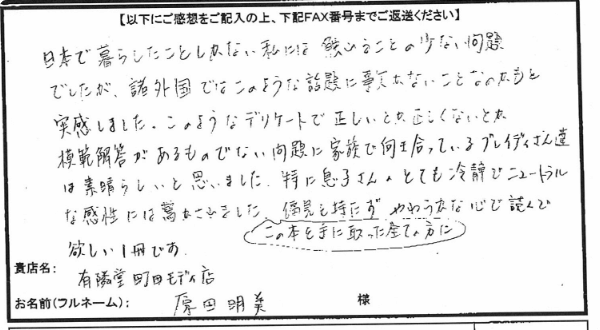 【以下にご感想をご記入の上、下記FAX番号までご返送ください】
日本で暮らしたことしかない私には 触れることの少ない問題
でしたが、諸外国ではこのような話題に事欠かないことなのかもと
実感しました。このようなデリケートで正しいとか正しくないとか
模範解答があるものでない問題に家族で向き合っているブレイディさん達
は素晴らしいと思いました。特に息子さんのとても冷静でニュートラル
な感性には驚かされました。偏見を持たず やわらかな心で読んで
この本を手に取った全ての方に
欲しい1冊です。
貴店名: 有隣堂 町田モディ店
お名前(フルネーム): 原田明美 様